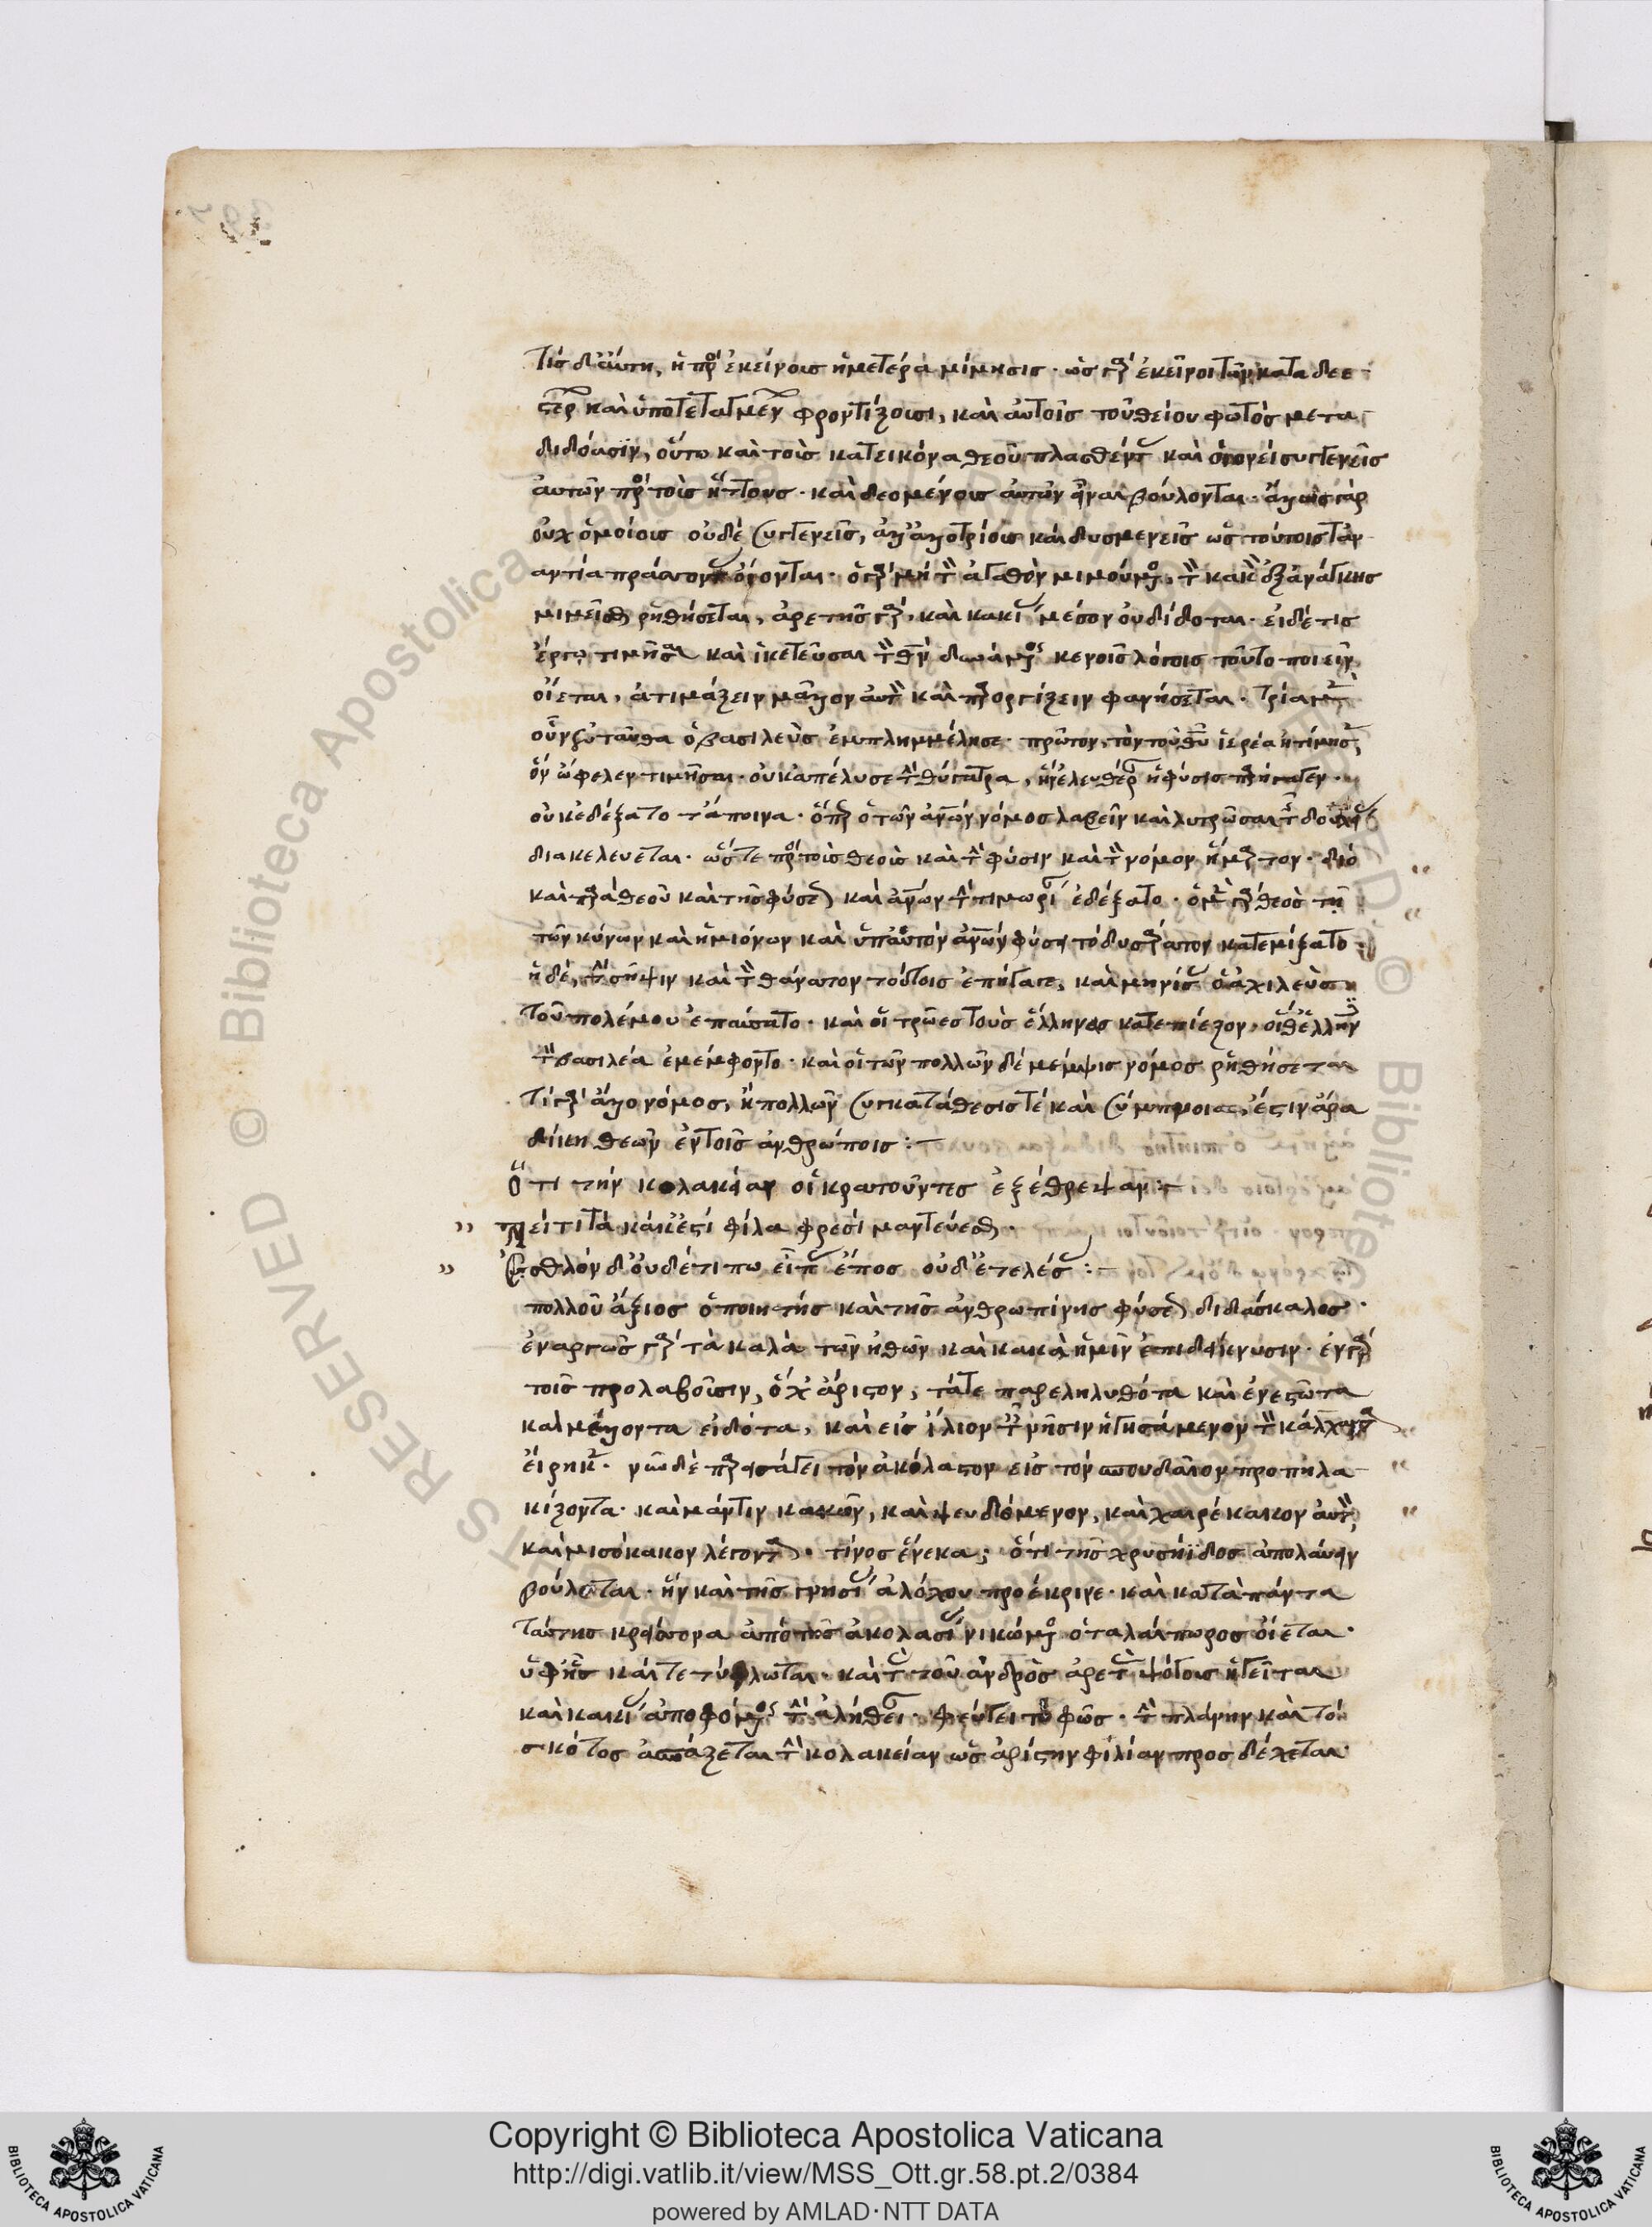 τίς δ' αύτη, ἡ πρὸς ἐκείνοις ἡμετέρα μίμησις· ὡς γὰρ ἐκεῖνοι τῶν καταδεε-
στέρων καὶ ὑποτεταγμένων φροντίζουσι, καὶ αὐτοῖς τοῦ θείου φωτὸς μετα-
διδόασιν, οὕτω καὶ τοὺς κατ' εικόνα θεοῦ πλασθέντας καὶ οἱονεὶ συγγενεῖς
αὐτῶν πρὸς τοὺς ἥττονας· καὶ δεομένους αὐτῶν εἶναι βούλονται· ἄλλως γὰρ
οὐχ ὁμοίους οὐδὲ συγγενεῖς, ἀλλ' ἀλλοτρίους καὶ δυσμενεῖς ὡς τούτοις ταν-
αντία πράττοντας οἴονται· ὁ γὰρ μὴ τὸν ἀγαθὸν μιμούμενος, τὸν κακὸν ἐξ ἀνάγκης
μιμεῖσθαι ῥηθήσεται, ἀρετῆς γὰρ, καὶ κακίας μέσον οὐ δίδοται· εἰ δέ τις
ἔργῳ τιμῆσαι καὶ ἱκετεῦσαι τὸν θεὸν δυνάμενος κενοῖς λόγοις τοῦτο ποιεῖν
οἴεται, ἀτιμάζειν μᾶλλον αὐτὸν καὶ παροργίζειν φανήσεται. τρία μὲν
οὖν ἐνταῦθα ὁ βασιλεὺς ἐμπλημμέλησε· πρῶτον, τὸν τοῦ θεοῦ ἱερέα ἠτίμησεν,
ὃν ὤφελεν τιμῆσαι· οὐκ ἀπέλυσε τὴν θύγατρα, ἣν ἐλευθέραν ἡ φύσις παρήγαγεν·
οὐκ ἐδέξατο τ' άποινα· ὅπερ ὁ τῶν ἀνθρώπων νόμος λαβεῖν καὶ λυτρῶσαι τὴν
διακελεύεται· ὥστε πρὸς τοὺς θεοὺς καὶ τὴν φύσιν καὶ τὸν νόμον ἥμαρτον· διὸ
καὶ παρὰ θεοῦ καὶ τῆς φύσεως καὶ ἀνθρώπων τὴν τιμωρίαν ἐδέξατο· ὁ μὲν γὰρ θεὸς τῇ
τῶν κύνων καὶ ἡμιόνων καὶ ὑπ' αὐτὸν ἀνθρώπων φύσει τὸ δυσκρατον κατεμίξατο·
ἡ δὲ, τὴν σῆψιν καὶ τὸν θάνατον τούτοις ἐπήγαγε, καὶ μηνίσας ὁ ἀχιλεὺς
τοῦ πολέμου ἐπαύσατο· καὶ οἱ τρῶες τοὺς ἕλληνας κατεπίεζον, οἱ δ' ἕλληνες
τὸν βασιλέα ἐμέμφοντο· καὶ οἱ τῶν πολλῶν δὲ μέμψις νόμος ῥηθήσεται
τί γὰρ ἄλλο νόμος, ἢ πολλῶν συγκατάθεσίς τε καὶ σύμπνοια, ἔστιν ἄρα
δίκη θεῶν ἐν τοῖς ἀνθρώποις :-
Ὅτι τὴν κολακείαν οἱ κρατοῦντες ἐξέθρεψαν :-
" ἀεί τι τὰ κάκ' ἐστὶ φίλα φρεσὶ μαντεύεσθαι.
" Ἐσθλὸν δ' οὐδέ τι πω εἶπας ἔπος οὐδ' ἐτέλεσας :-
πολλοῦ ἄξιος ὁ ποιητὴς καὶ τῆς ἀνθρωπίνης φύσεως διδάσκαλος·
ἐναργῶς γὰρ τὰ καλὰ τῶν ἠθῶν καὶ κακὰ ἡμῖν ἐπιδείκνυσιν· ἐν γὰρ
τοῖς προλαβοῦσιν, ὄχ' ἄριστον, τά τε παρεληλυθότα καὶ ἐνεστῶτα
καὶ μέλλοντα εἰδότα, καὶ εἰς ἴλιον τὴν νῆσιν ἡγησάμενον τὸν κάλχαντα
εἴρηκε· νῦν δὲ παρεισάγει τὸν ἀκόλαστον εἰς τὸν σπουδαῖον προπηλα-
κίζοντα· καὶ μάντιν κακῶν, καὶ ψευδόμενον, καὶ χαιρέκακον αὐτὸν,
καὶ μισόκακον λέγοντα· τίνος ἕνεκα; ὅτι τῆς χρυσηΐδος ἀπολαύειν
βούλεται· ἣν καὶ τῆς γνησίας ἀλόχου προέκρινε· καὶ κατὰ πάντα
ταύτης κρείσσονα ἀπὸ τῆς ἀκολασίας νικώμενος ὁ ταλαίπωρος οἴεται·
ὑφ' ἧς καί γε τύφλωται· καὶ τὰς τοῦ ἀνδρὸς ἀρετὰς ψόγους ἡγεῖται
καὶ κακίας ἀποφόμενος τὴν ἀλήθειαν· φεύγει τὸ φῶς· τὴν πλάνην καὶ τὸ
σκότος ἀσπάζεται τὴν κολακείαν ὡς ἀρίστην φιλίαν προσδέχεται·
Copyright © Biblioteca Apostolica Vaticana
http://digi.vatlib.it/view/MSS_Ott.gr.58.pt.2/0384
powered by AMLAD · NTT DATA
BIBLIOTECA APOSTOLICA VATICANA
BIBLIOTECA APOSTOLICA VATICANA